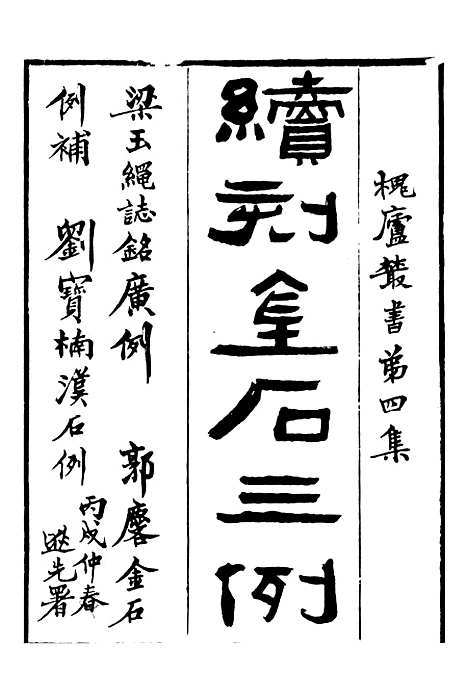 槐廬叢書第四集
續刻金石三例
梁玉繩誌銘廣例　郭麐金石
例補　劉寶楠漢石例
丙戌仲春
先署